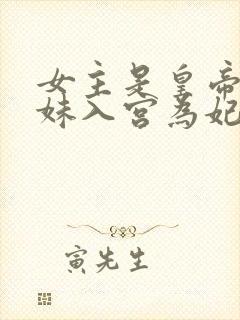 女主是皇帝
妹入宫为妃
寅先生